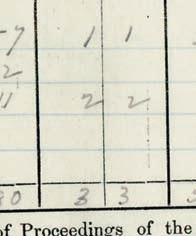 7 1 1
2
11 2 2
80 3 3
of Proceedings of the